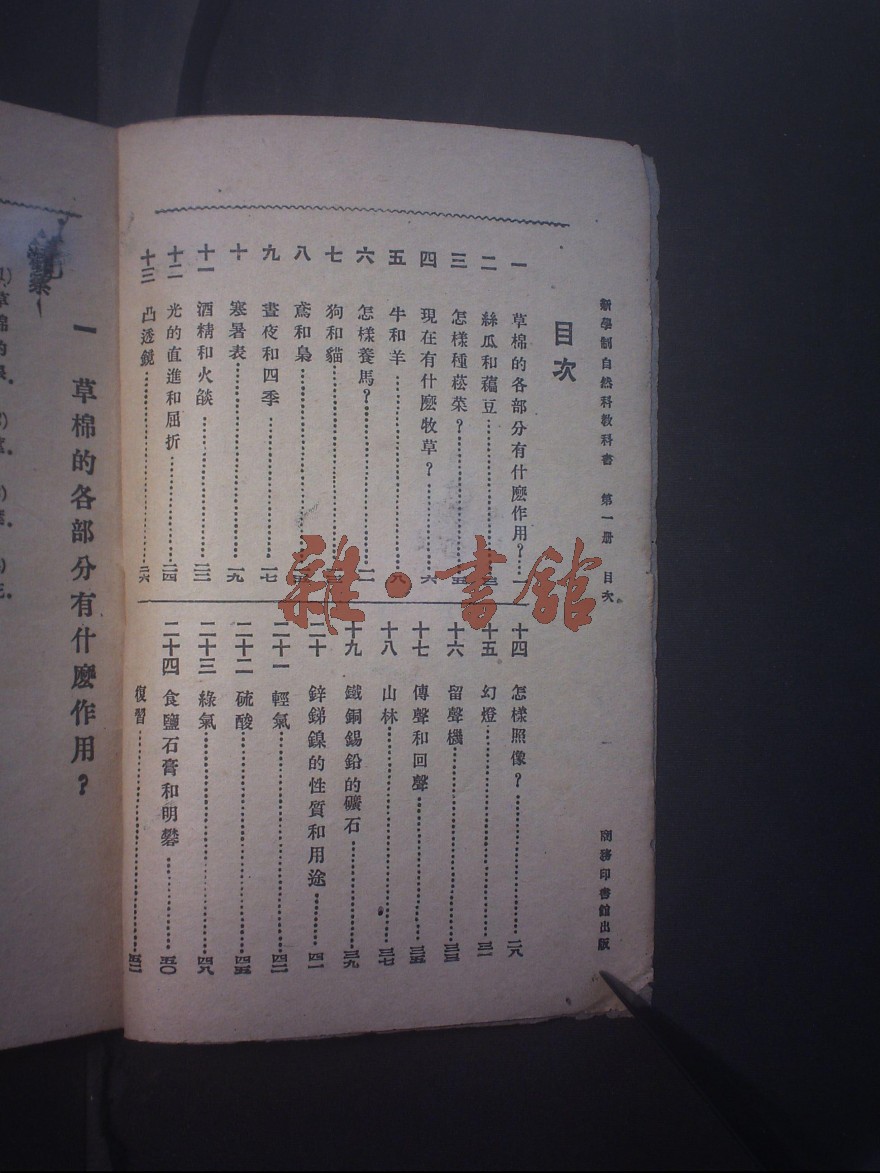 新學制自然科教科書　第一册　目次
商務印書館出版
目次
一　草棉的各部分有什麽作用？……一
二　絲瓜和藊豆……三
三　怎樣種菘菜？……五
四　現在有什麽牧草？……六
五　牛和羊……八
六　怎樣養馬？……一一
七　狗和貓……
八　鳶和梟……
九　晝夜和四季……一七
十　寒暑表……一九
十一　酒精和火燄……二二
十二　光的直進和屈折……二四
十三　凸透鏡……二六
十四　怎樣照像？……二八
十五　幻燈……三一
十六　留聲機……三三
十七　傳聲和回聲……三五
十八　山林……三七
十九　鐵銅錫鉛的礦石……三九
二十　鋅銻鎳的性質和用途……四一
二十一　輕氣……四二
二十二　硫酸……四五
二十三　綠氣……四八
二十四　食鹽石膏和明礬……五〇
復習……五二
一　草棉的各部分有什麽作用？
雜·書館